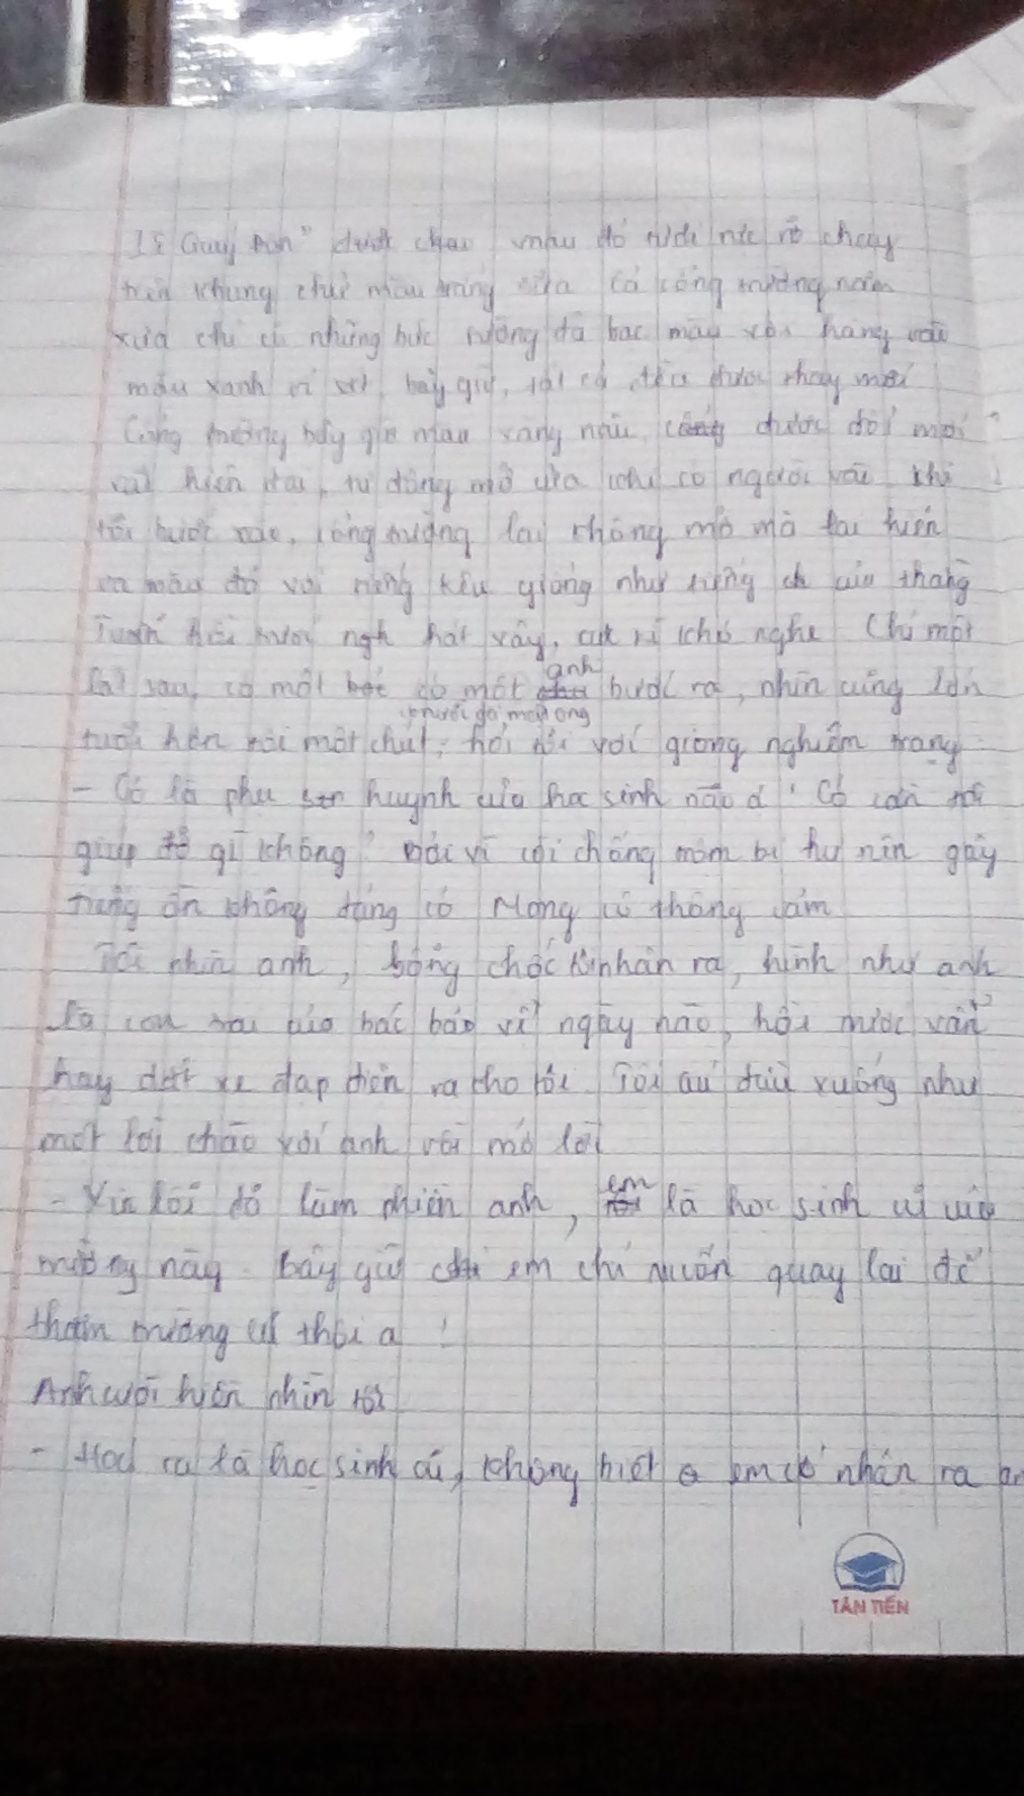 Lê Quý Đôn" được chạy màu đỏ tươi nổi rõ chạy
trên khung chữ màu trắng sữa. Cả cổng trường năm
xưa chỉ có những bức tường đã bạc màu với hàng rào
màu xanh rỉ sét, bây giờ, tất cả đều được thay mới
Cổng trường bây giờ màu vàng nâu, được đổi mới
rất hiện đại, tự động mở cửa khi có người vào. Khi
tôi bước vào, cổng trường lại không mở mà lại hiện
ra màu đỏ với tiếng kêu giống như tiếng của thằng
Tuấn hồi trước hát vậy, cực kì khó nghe. Chỉ một
lát sau, có một có một anh bước ra, nhìn cũng lớn
tuổi hơn tôi một chút, hỏi tôi với giọng nghiêm trang
- Cô là phụ huynh của học sinh nào ạ? Cô cần tôi
giúp đỡ gì không? Bởi vì cái chống trộm bị hư nên gây
tiếng ồn không đáng có. Mong cô thông cảm
Tôi nhìn anh, bỗng chốc nhận ra, hình như anh
là con trai của bác bảo vệ ngày nào, hồi trước vẫn
hay dắt xe đạp điện ra cho tôi. Tôi cúi đầu xuống như
một lời chào với anh rồi mở lời
- Xin lỗi đã làm phiền anh, em là học sinh cũ của
trường này bây giờ em chỉ muốn quay lại để
thăm trường cũ thôi ạ!
Anh cười hiền nhìn tôi
- Hoá ra là học sinh cũ, không biết em có nhận ra an
TÂN TIẾN